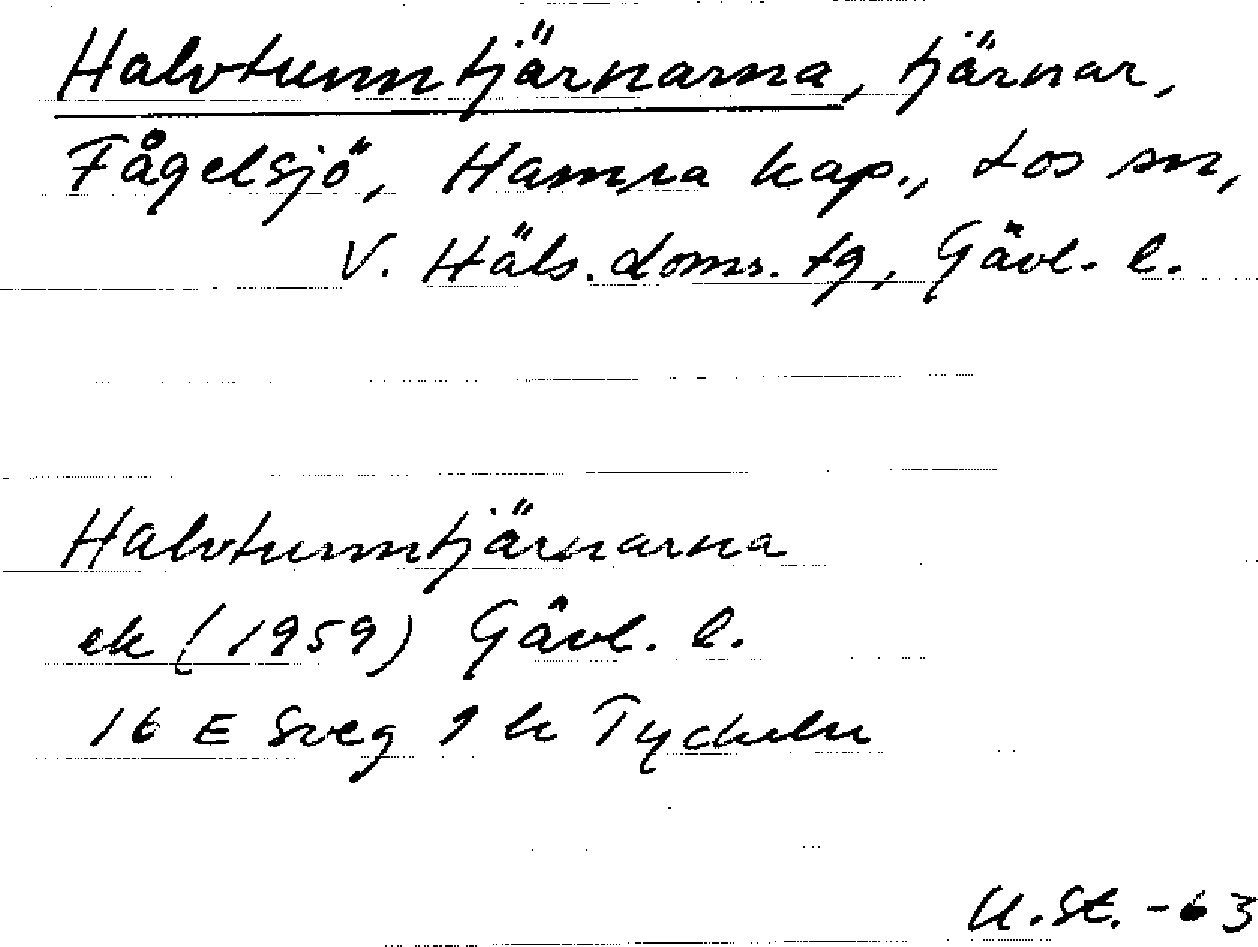 Halvtunntjärnarna, tjärnar,
Fågelsjö, Hamra kap., Los sn,
V. Häls. doms. tg, Gävl. l.
Halvtunntjärnarna
ek (1959) Gävl. l.
16 E Sveg 1 h Tyckeln
U. St. -63